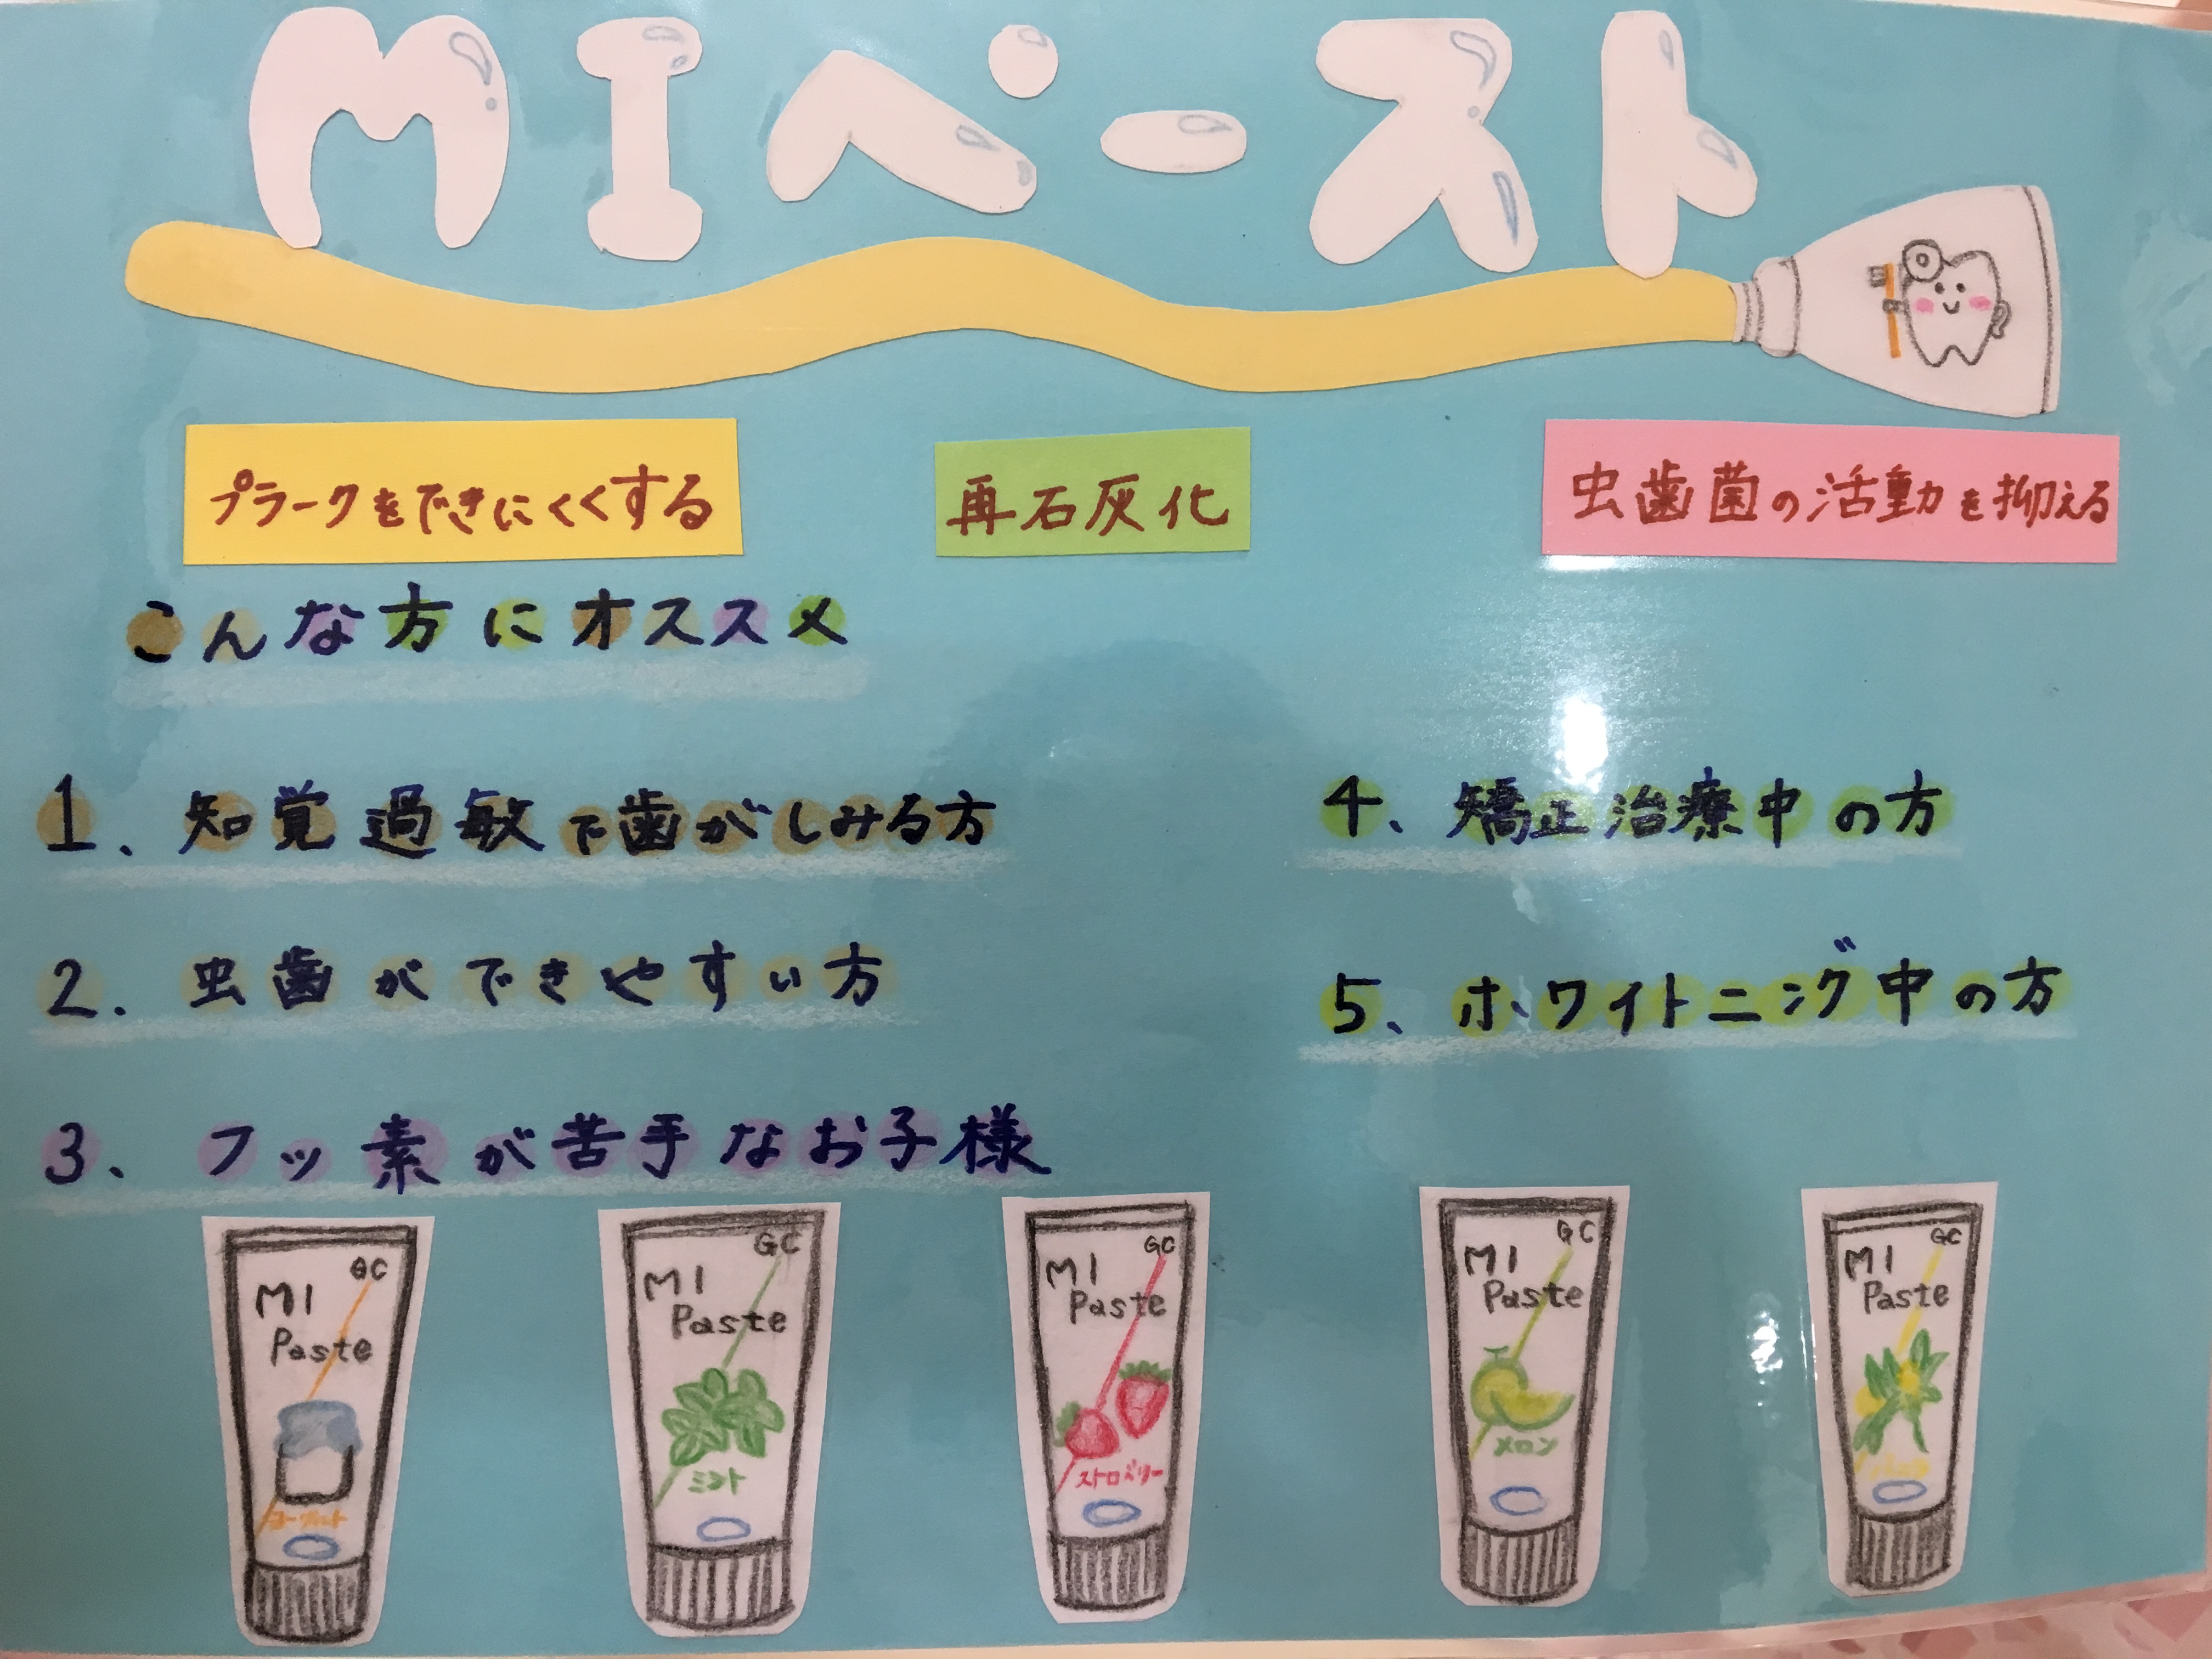 MIペースト
プラークをできにくくする
再石灰化
虫歯菌の活動を抑える
こんな方にオススメ
1、知覚過敏で歯がしみる方
2、虫歯ができやすい方
3、フッ素が苦手なお子様
4、矯正治療中の方
5、ホワイトニング中の方
GC
MI
Paste
ヨーグルト
GC
MI
Paste
ミント
GC
MI
Paste
ストロベリー
GC
MI
Paste
メロン
GC
MI
Paste